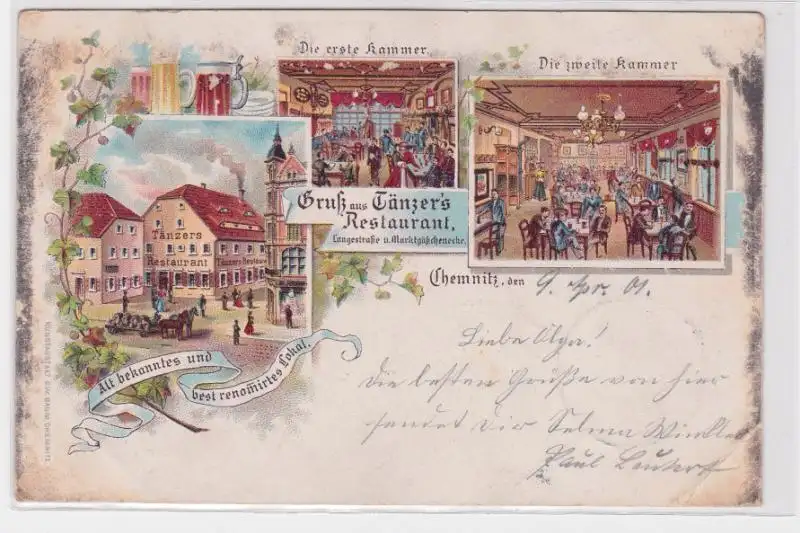 Die erste Kammer.
Die zweite Kammer
Tänzers
Restaurant
Tänzers Restaur
Gruß aus Tänzer's
Restaurant,
Langestraße u. Marktgäßchenecke.
Chemnitz, den 9. Apr. 01.
Liebe Olga!
Die besten Grüße von hier
sendet Dir Selma Winkler
Paul
Alt bekanntes und
best renomirtes Lokal.